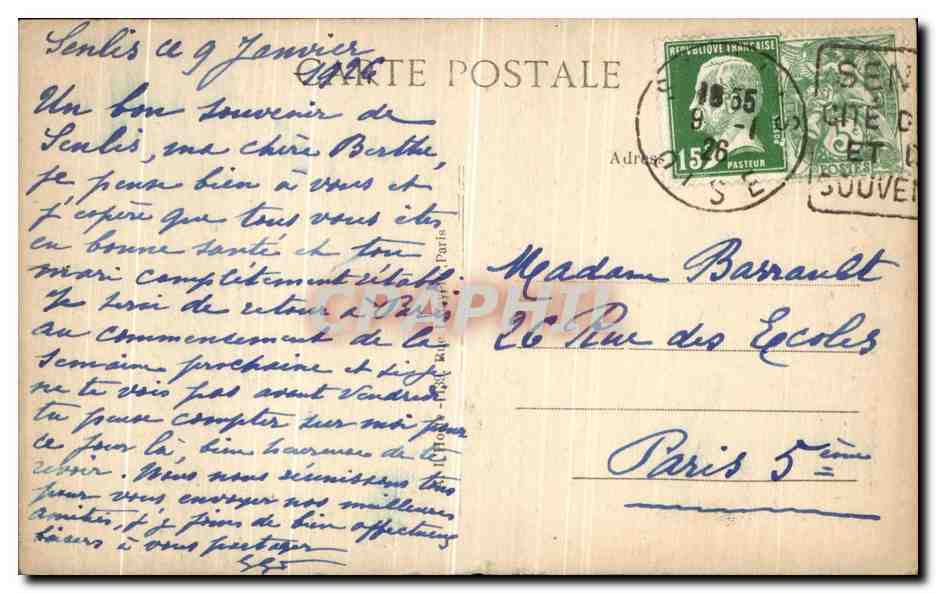 Senlis ce 9 Janvier
1926
Un bon souvenir de
Senlis, ma chère Berthe,
je pense bien à vous et
j'espère que tous vous êtes
en bonne santé et ton
mari complètement rétabli
Je serai de retour à Paris
au commencement de la
semaine prochaine et si je
ne te vois pas avant Vendredi
tu peux compter sur moi pour
ce jour là, bien heureuse de te
revoir. Nous nous réunissons tous
pour vous envoyer nos meilleures
amitiés, j'y joins de bien affectueux
baisers à vous partager
CARTE POSTALE
Adresse
RÉPUBLIQUE FRANÇAISE
15c
PASTEUR
POSTES
5c
POSTES
18 55
9 -1
26
OISE
SEN
CITE
ET
SOUVEN
Paris
Madame Barrault
26 Rue des Ecoles
Paris 5ème
CPAPHIL